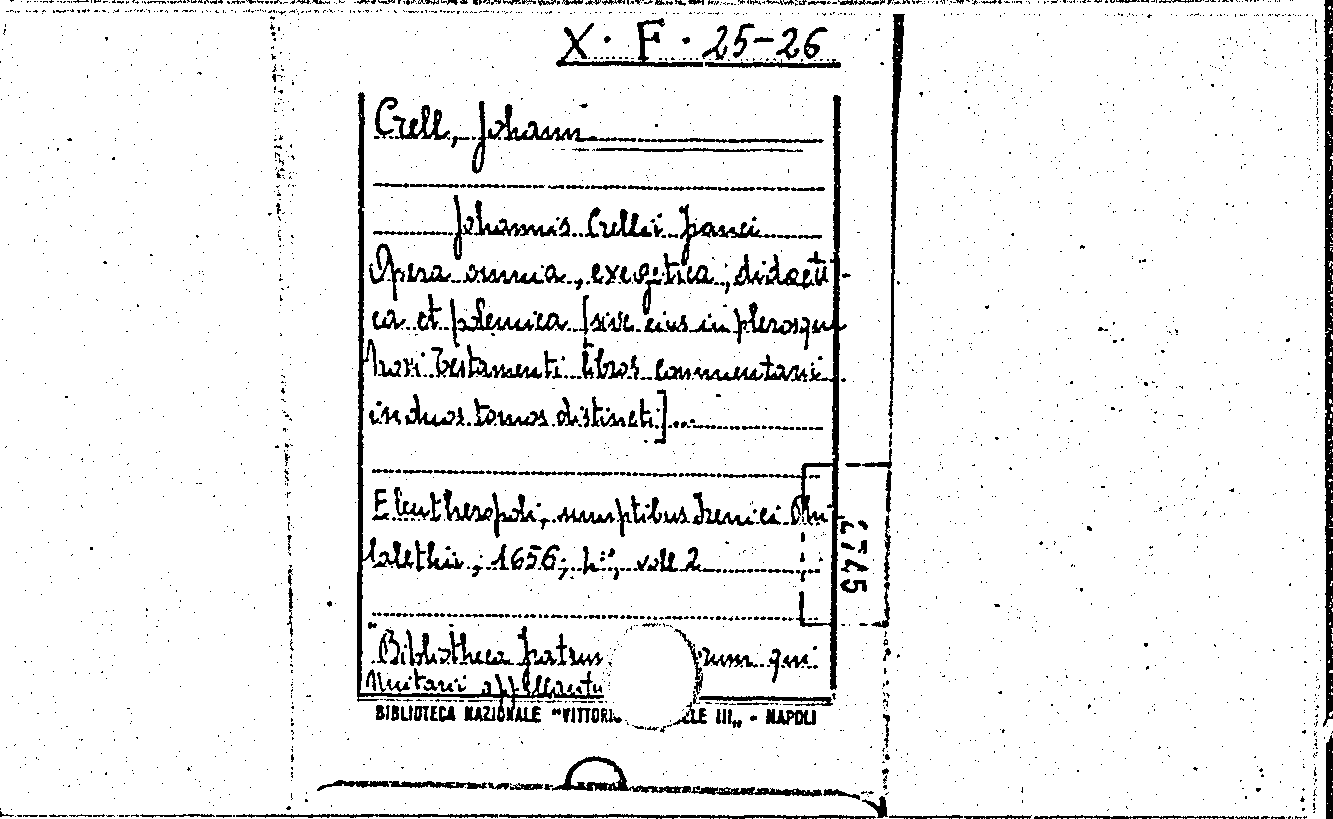 X. F. 25-26
Crell, Johann
Johannis Crellii Franci
Opera omnia, exegetica, didacti-
ca et polemica [sive eius in plerosque
Novi Testamenti libros commentarii
in duos tomos distincti]...
Eleutheropoli, sumptibus Irenici Phi
lalethii, 1656; 4°, voll 2
2745
"Bibliotheca fratrum qui
Unitarii appellantu
BIBLIOTECA NAZIONALE "VITTORI ELE III„ - NAPOLI